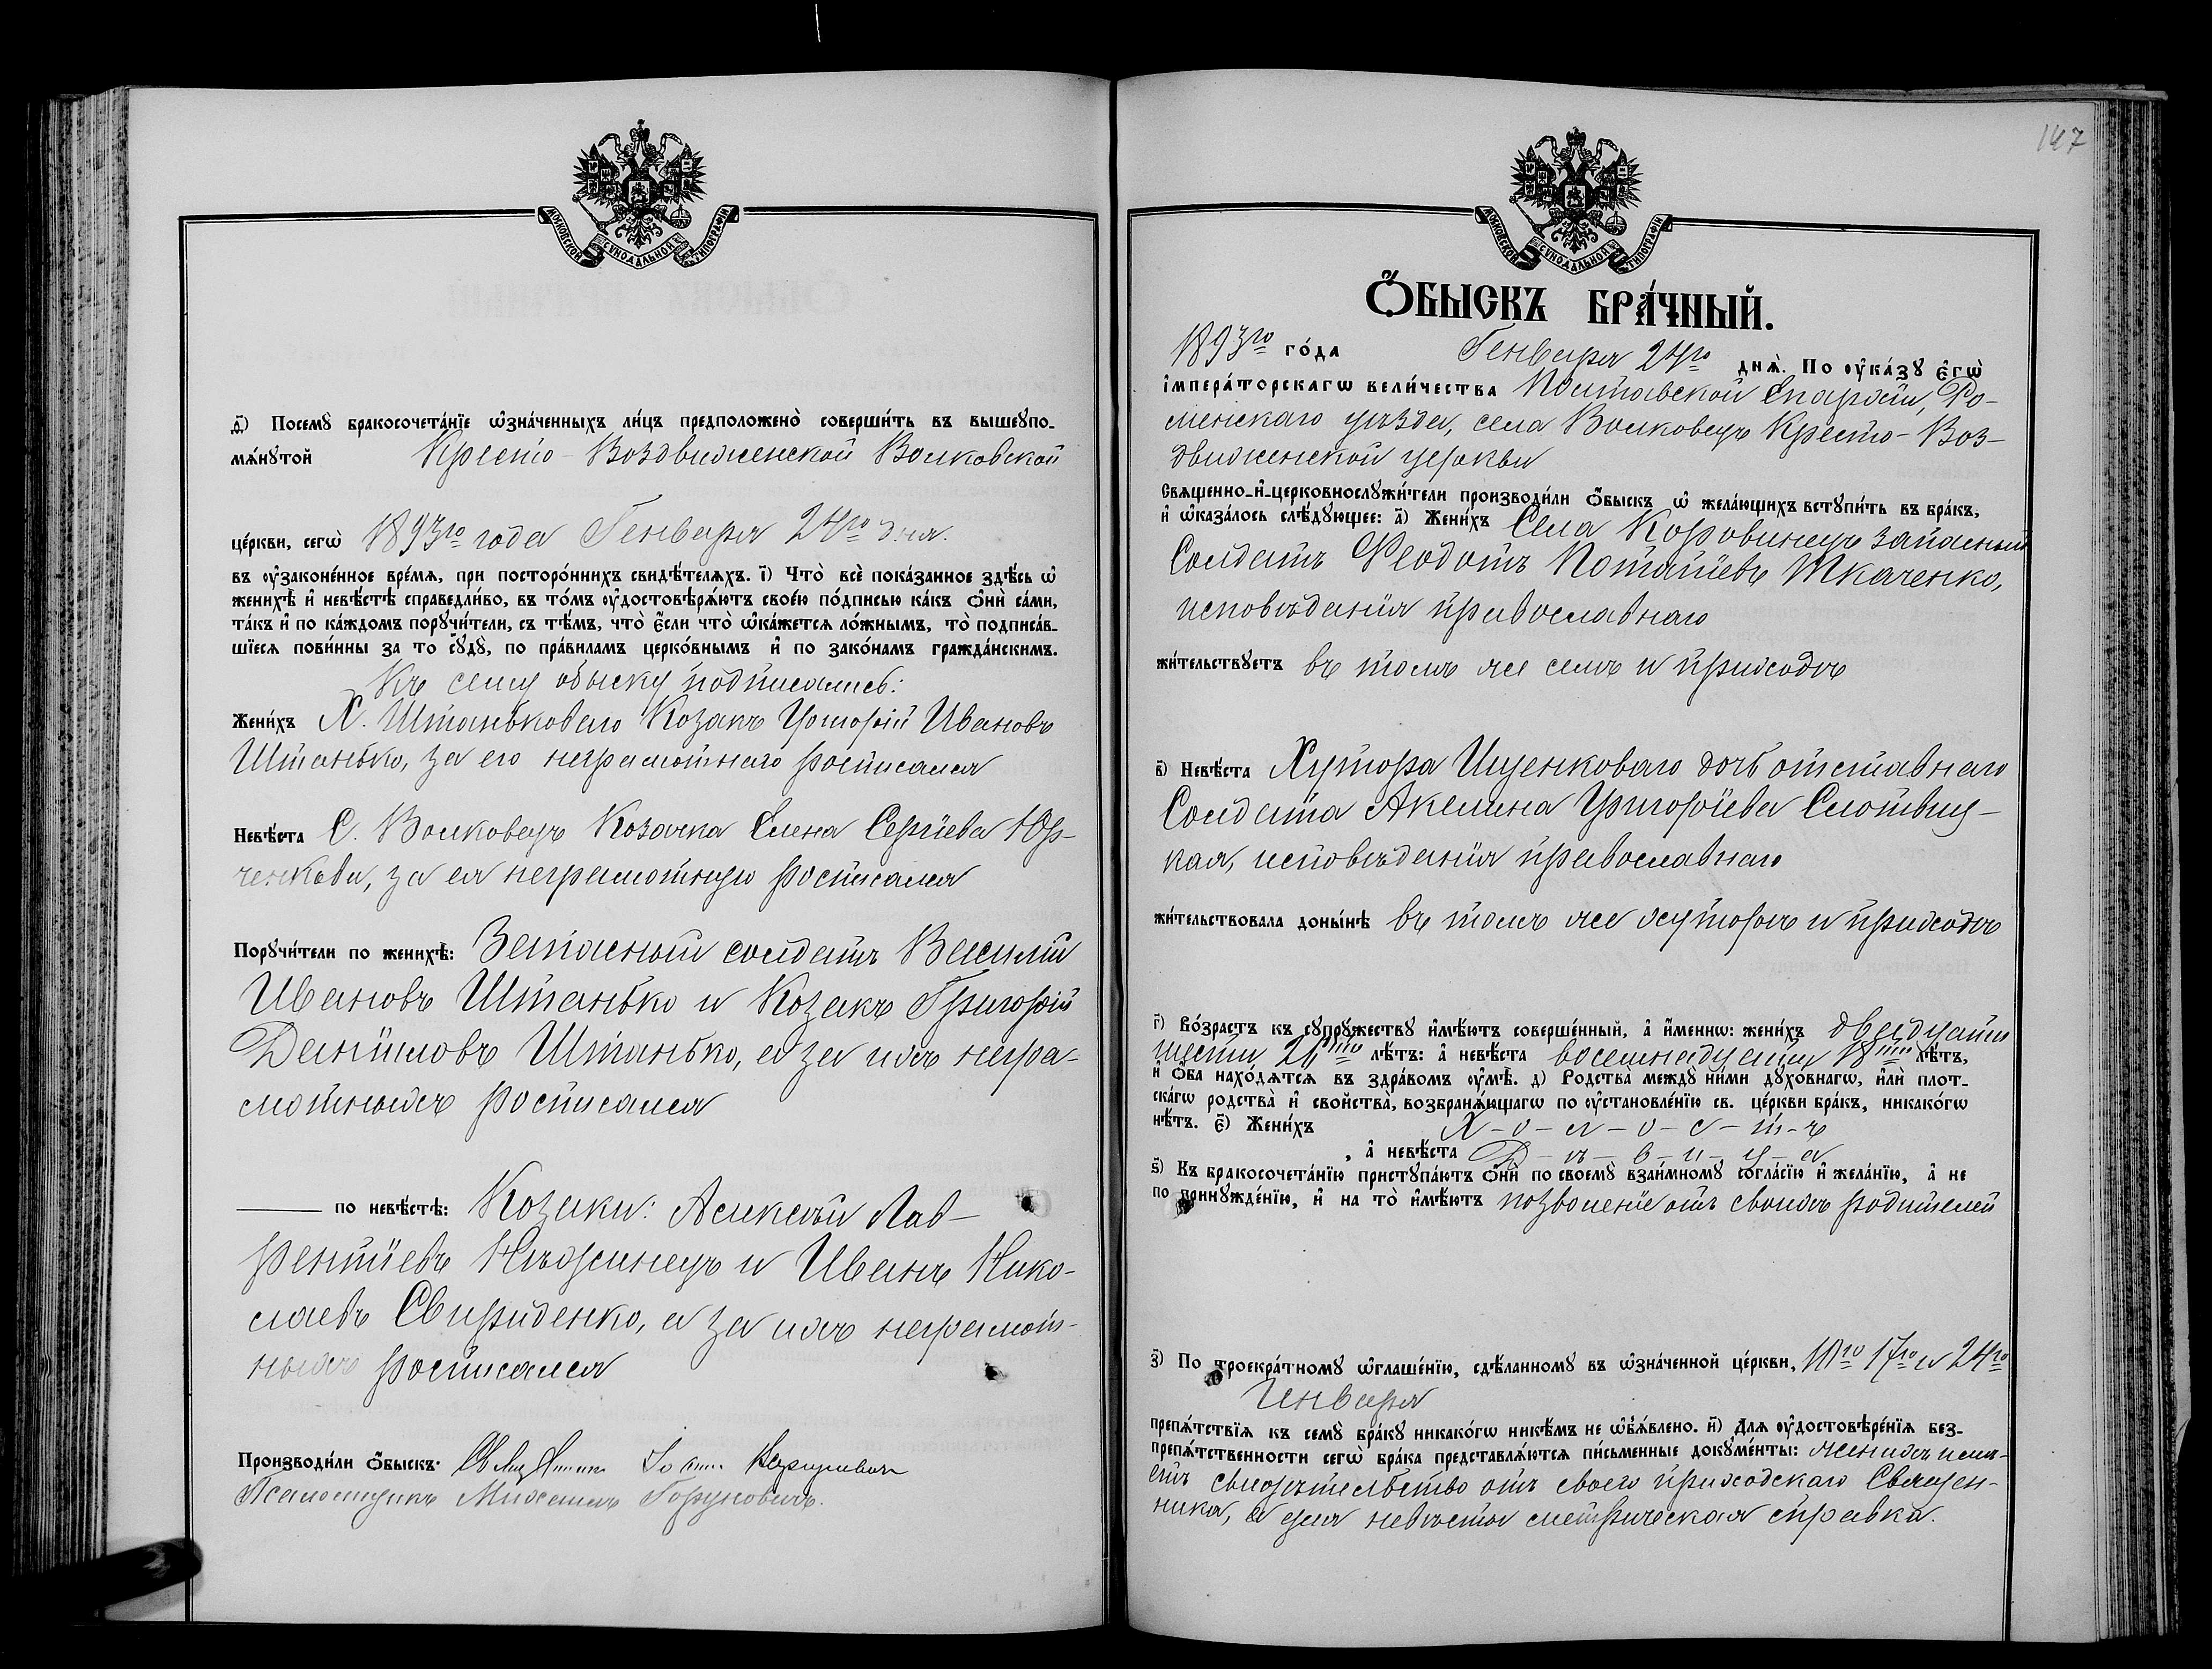 МОСКОВСКОЙ СѴНОДАЛЬНОЙ ТИПОГРАФІИ
д҃) Посемꙋ бракосочета́нїе ѡ҆зна́ченныхъ ли́цъ предположено̀ соверши́ть въ вышеꙋпо-
мѧ́нꙋтой Кресто-Воздвиженской Волковской
це́ркви, сегѡ̀ 1893го года Генваря 24го дня.
въ ᲂу҆законе́нное вре́мѧ, при посторо́ннихъ свидѣ́телѧхъ. і҃) Что̀ всѐ пока́занное здѣ́сь ѡ҆
женихѣ̀ и҆ невѣ́стѣ справедли́во, въ то́мъ ᲂу҆достовѣрѧ́ютъ свое́ю по́дписью ка́къ ѻ҆нѝ са́ми,
та́къ и҆ по ка́ждомъ порꙋчи́тели, съ тѣ́мъ, что̀ є҆́сли что̀ ѡ҆ка́жетсѧ ло́жнымъ, то̀ подписа́в-
шїесѧ пови́нны за то сꙋдꙋ̀, по пра́виламъ церко́внымъ и҆ по зако́намъ гражда́нскимъ.
Къ сему обыску подписались:
Жени́хъ Х. Штаньковаго Козакъ Григорій Ивановъ
Штанько, за его неграмотнаго росписался
Невѣ́ста С. Волковецъ Козачка Елена Сергіева Юр-
ченкова, за ея неграмотную росписался
Порꙋчи́тели по женихѣ̀: Запасный солдатъ Василій
Ивановъ Штанько и Козакъ Григорій
Даниловъ Штанько, а за ихъ негра-
мотныхъ росписался
по невѣ́стѣ: Козаки: Алексѣй Лав-
рентіевъ Нѣжинецъ и Иванъ Нико-
лаевъ Свириденко, а за ихъ неграмот-
ныхъ росписался
Производи́ли ѻ҆́быскъ: Іоаннъ
Псаломщикъ Михаилъ
147
МОСКОВСКОЙ СѴНОДАЛЬНОЙ ТИПОГРАФІИ
Ѻ҆́БЫСКЪ БРА́ЧНЫЙ.
1893го го́да Генваря 24го днѧ̀. По ᲂу҆ка́зꙋ є҆гѡ̀
і҆мпера́торскагѡ вели́чества Полтавской Епархіи, Ро-
менскаго уѣзда, села Волковецъ Кресто-Воз-
движенской церкви
Свѧщенно-и҆-церковнослꙋжи́тели производи́ли ѻ҆́быскъ ѡ҆ жела́ющихъ встꙋпи́ть въ бра́къ,
и҆ ѡ҆каза́лось слѣ́дꙋющее: а҃) Жени́хъ Села Коровинецъ запасный
Солдатъ Феодотъ Потапіевъ Ткаченко,
исповѣданія православнаго
жи́тельствꙋетъ въ томъ же селѣ и приходѣ
в҃) Невѣ́ста Хутора Ищенковаго дочь отставнаго
Солдата Акелина Григоріева Слотвиц-
кая, исповѣданія православнаго
жи́тельствовала доны́нѣ въ томъ же хуторѣ и приходѣ
г҃) Во́зрастъ къ сꙋпрꙋ́жествꙋ и҆мѣ́ютъ соверше́нный, а҆ и҆́меннѡ: жени́хъ двадцати
шести 26ти лѣ́тъ: а҆ невѣ́ста восемнадцати 18ти лѣ́тъ,
и҆ ѻ҆́ба нахо́дѧтсѧ въ здра́вомъ ᲂу҆мѣ̀. д҃) Родства̀ междꙋ̀ ни́ми дꙋхо́внагѡ, и҆лѝ плот-
ска́гѡ родства̀ и҆ сво́йства̀, возбранѧ́ющагѡ по ᲂу҆становле́нїю св. це́ркви бра́къ, никако́гѡ
нѣ́тъ. є҃) Жени́хъ Х-о-л-о-с-т-ъ
, а҆ невѣ́ста Д-ѣ-в-и-ц-а
ѕ҃) Къ бракосочета́нїю пристꙋпа́ютъ ѻ҆нѝ по своемꙋ̀ взаи́мномꙋ согла́сїю и҆ жела́нїю, а҆ не
по принꙋжде́нїю, и҆ на то̀ и҆мѣ́ютъ позволеніе отъ своихъ родителей
з҃) По троекра́тномꙋ ѡ҆глаше́нїю, сдѣ́ланномꙋ въ ѡ҆зна́ченной це́ркви, 10го 17го и 24го
Инваря
препѧ́тствїѧ къ семꙋ̀ бра́кꙋ никако́гѡ никѣ́мъ не ѡ҆б̾ѧ́влено. и҃) Длѧ ᲂу҆достовѣре́нїѧ без-
препѧ́тственности сегѡ̀ бра́ка представлѧ́ютсѧ пи́сьменные докꙋме́нты: женихъ имѣ-
етъ свидѣтельство отъ своего приходскаго Священ-
ника, а для невѣсты метрическая справка.